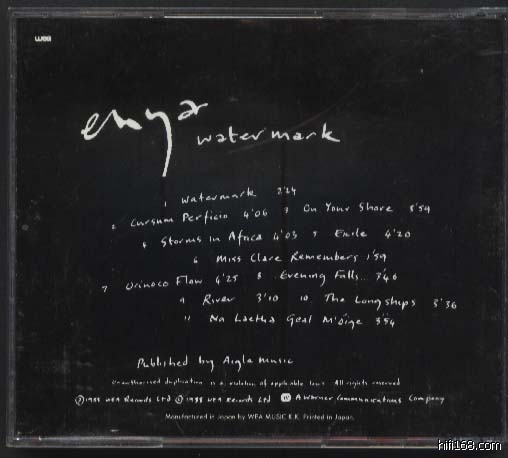 wea
enya
watermark
1 Watermark 2'24
2 Cursum Perficio 4'06 3 On Your Shore 3'59
4 Storms In Africa 4'03 5 Exile 4'20
6 Miss Clare Remembers 1'59
7 Orinoco Flow 4'25 8 Evening Falls... 3'46
9 River 3'10 10 The Longships 3'36
11 Na Laetha Geal M'óige 3'54
Published by Aigle Music
Unauthorised duplication is a violation of applicable laws All rights reserved
Ⓟ1988 WEA Records Ltd ©1988 WEA Records Ltd A Warner Communications Company
Manufactured in Japan by WEA MUSIC K.K. Printed in Japan.
hifi168.com